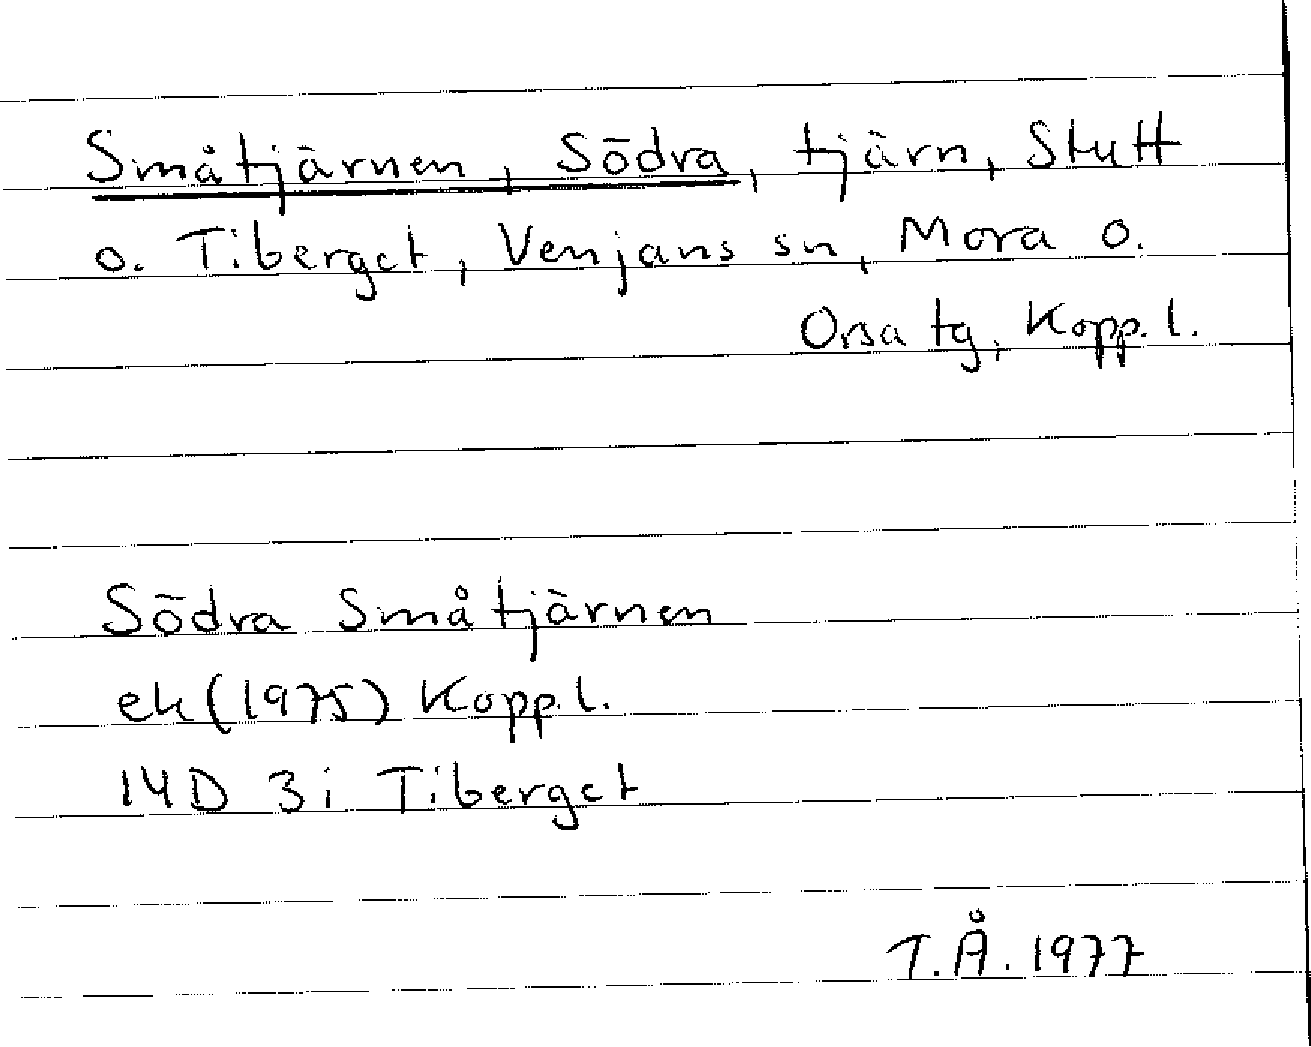 Småtjärnen, Södra, tjärn, Stutt
o. Tiberget, Venjans sn, Mora o.
Orsa tg, Kopp. l.
Södra Småtjärnen
ek (1975) Kopp. l.
14D 3i Tiberget
T.Å. 1977